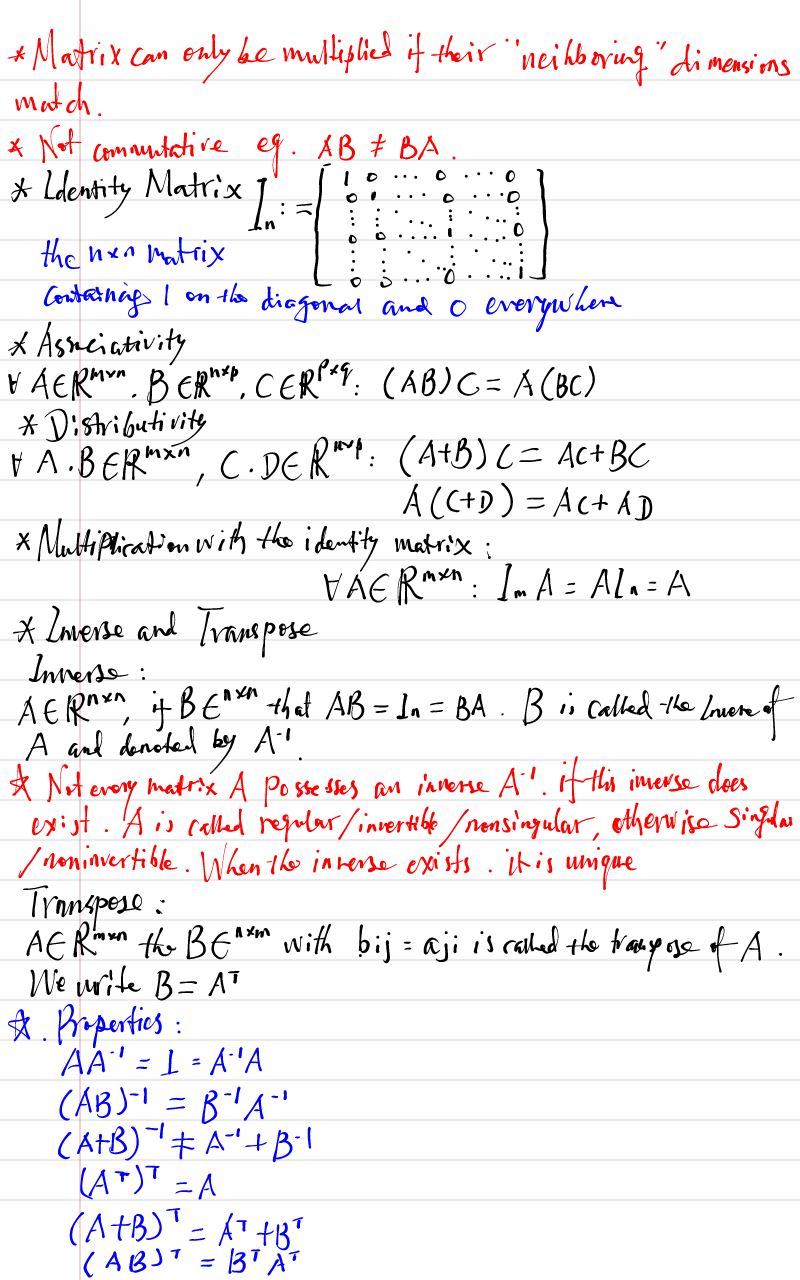 * Matrix can only be multiplied if their "neihboring" dimensions
match.
* Not commutative eg. AB ≠ BA.
* Identity Matrix Iₙ := [ 1 0 ... 0 ... 0
0 1 ... 0 ... 0
⋮ ⋮ ⋱ ⋮ ⋱ ⋮
0 0 ... 1 ... 0
⋮ ⋮ ⋱ ⋮ ⋱ ⋮
0 0 ... 0 ... 1 ]
the n×n matrix
Containing 1 on the diagonal and 0 everywhere
* Associativity
∀ A∈ℝᵐˣⁿ. B∈ℝⁿˣᵖ, C∈ℝᵖˣq: (AB)C = A(BC)
* Distributivity
∀ A.B∈ℝᵐˣⁿ, C.D∈ℝⁿˣᵖ: (A+B)C = AC+BC
A(C+D) = AC+AD
* Multiplication with the identity matrix:
∀A∈ℝᵐˣⁿ: Iₘ A = AIₙ = A
* Inverse and Transpose
Inverse:
A∈ℝⁿˣⁿ, if B∈ⁿˣⁿ that AB = Iₙ = BA. B is called the Inverse of
A and denoted by A⁻¹.
* Not every matrix A possesses an inverse A⁻¹. if this inverse does
exist. A is called regular/invertible/nonsingular, otherwise singular
/noninvertible. When the inverse exists. it is unique
Transpose:
A∈ℝᵐˣⁿ the B∈ⁿˣᵐ with bij = aji is called the transpose of A.
We write B = Aᵀ
*. Properties:
AA⁻¹ = I = A⁻¹A
(AB)⁻¹ = B⁻¹A⁻¹
(A+B)⁻¹ ≠ A⁻¹+B⁻¹
(Aᵀ)ᵀ = A
(A+B)ᵀ = Aᵀ+Bᵀ
(AB)ᵀ = BᵀAᵀ